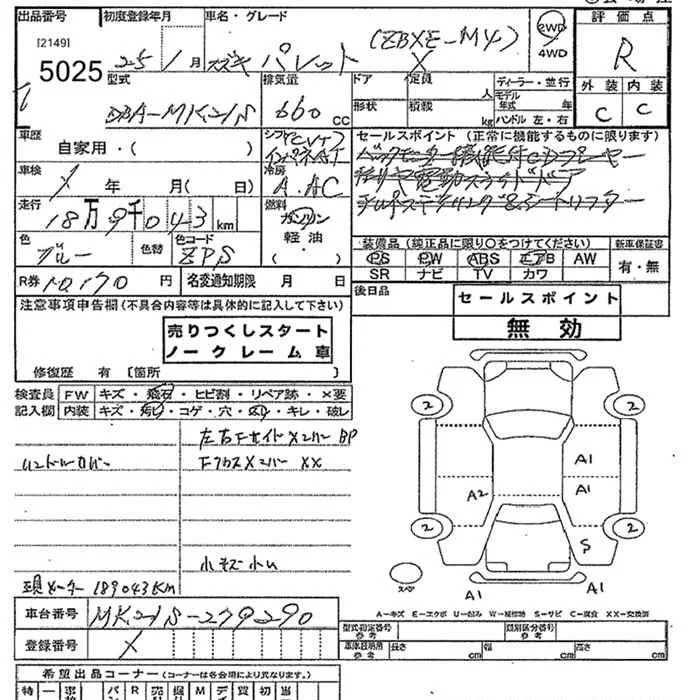 出品番号 初度登録年月 車名・グレード 評価点
[2149]
5025 25年1月 スズキ パレット (ZBXE-M4) X 2WD 4WD R
外装 内装
C C
型式 DBA-MK21S 排気量 660 cc
ドア 定員 人 ディーラー・並行
形状 積載 kg モデル年式 年 ハンドル 左・右
車歴 自家用・( )
シフト (CVT) インパネAT
セールスポイント (正常に機能するものに限ります)
車検 X 年 月( 日)
冷房 A.AC
走行 18万9千043km
燃料 ガソリン 軽油・( ・ )
色 ブルー 色替 色コード ZPS
装備品 (純正品に限り○をつけてください) 新車保証書
PS PW ABS エアB AW 有・無
SR ナビ TV カワ
R券 10,170 円 名変通知期限 月 日
後日品
セールスポイント
無効
注意事項申告欄 (不具合内容等は具体的に記入して下さい)
売りつくしスタート
ノークレーム車
修復歴 有 [箇所 ]
検査員記入欄 FW キズ・飛石・ヒビ割・リペア跡・×要
内装 キズ・汚れ・コゲ・穴・ ・キレ・破レ
左右Fサイドメンバー BP
ハンドルカバー FクロスメンバーXX
小キズ小凹
現メーター 189043Km
2 2
A1
A2 A1
2 2
S
スペア
A1 A1
A-キズ E-エクボ U-凹み W-補修跡 S-サビ C-腐食 XX-交換済
車台番号 MK21S-279290
登録番号 X
型式指定番号 参考 類別区分番号 参考
車体証明用 参考 長さ cm 幅 cm 高さ cm
希望出品コーナー (コーナーは各会場により異なります。)